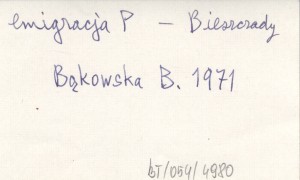 emigracja P - Bieszczady
Bąkowska B. 1971
bT/054/4980